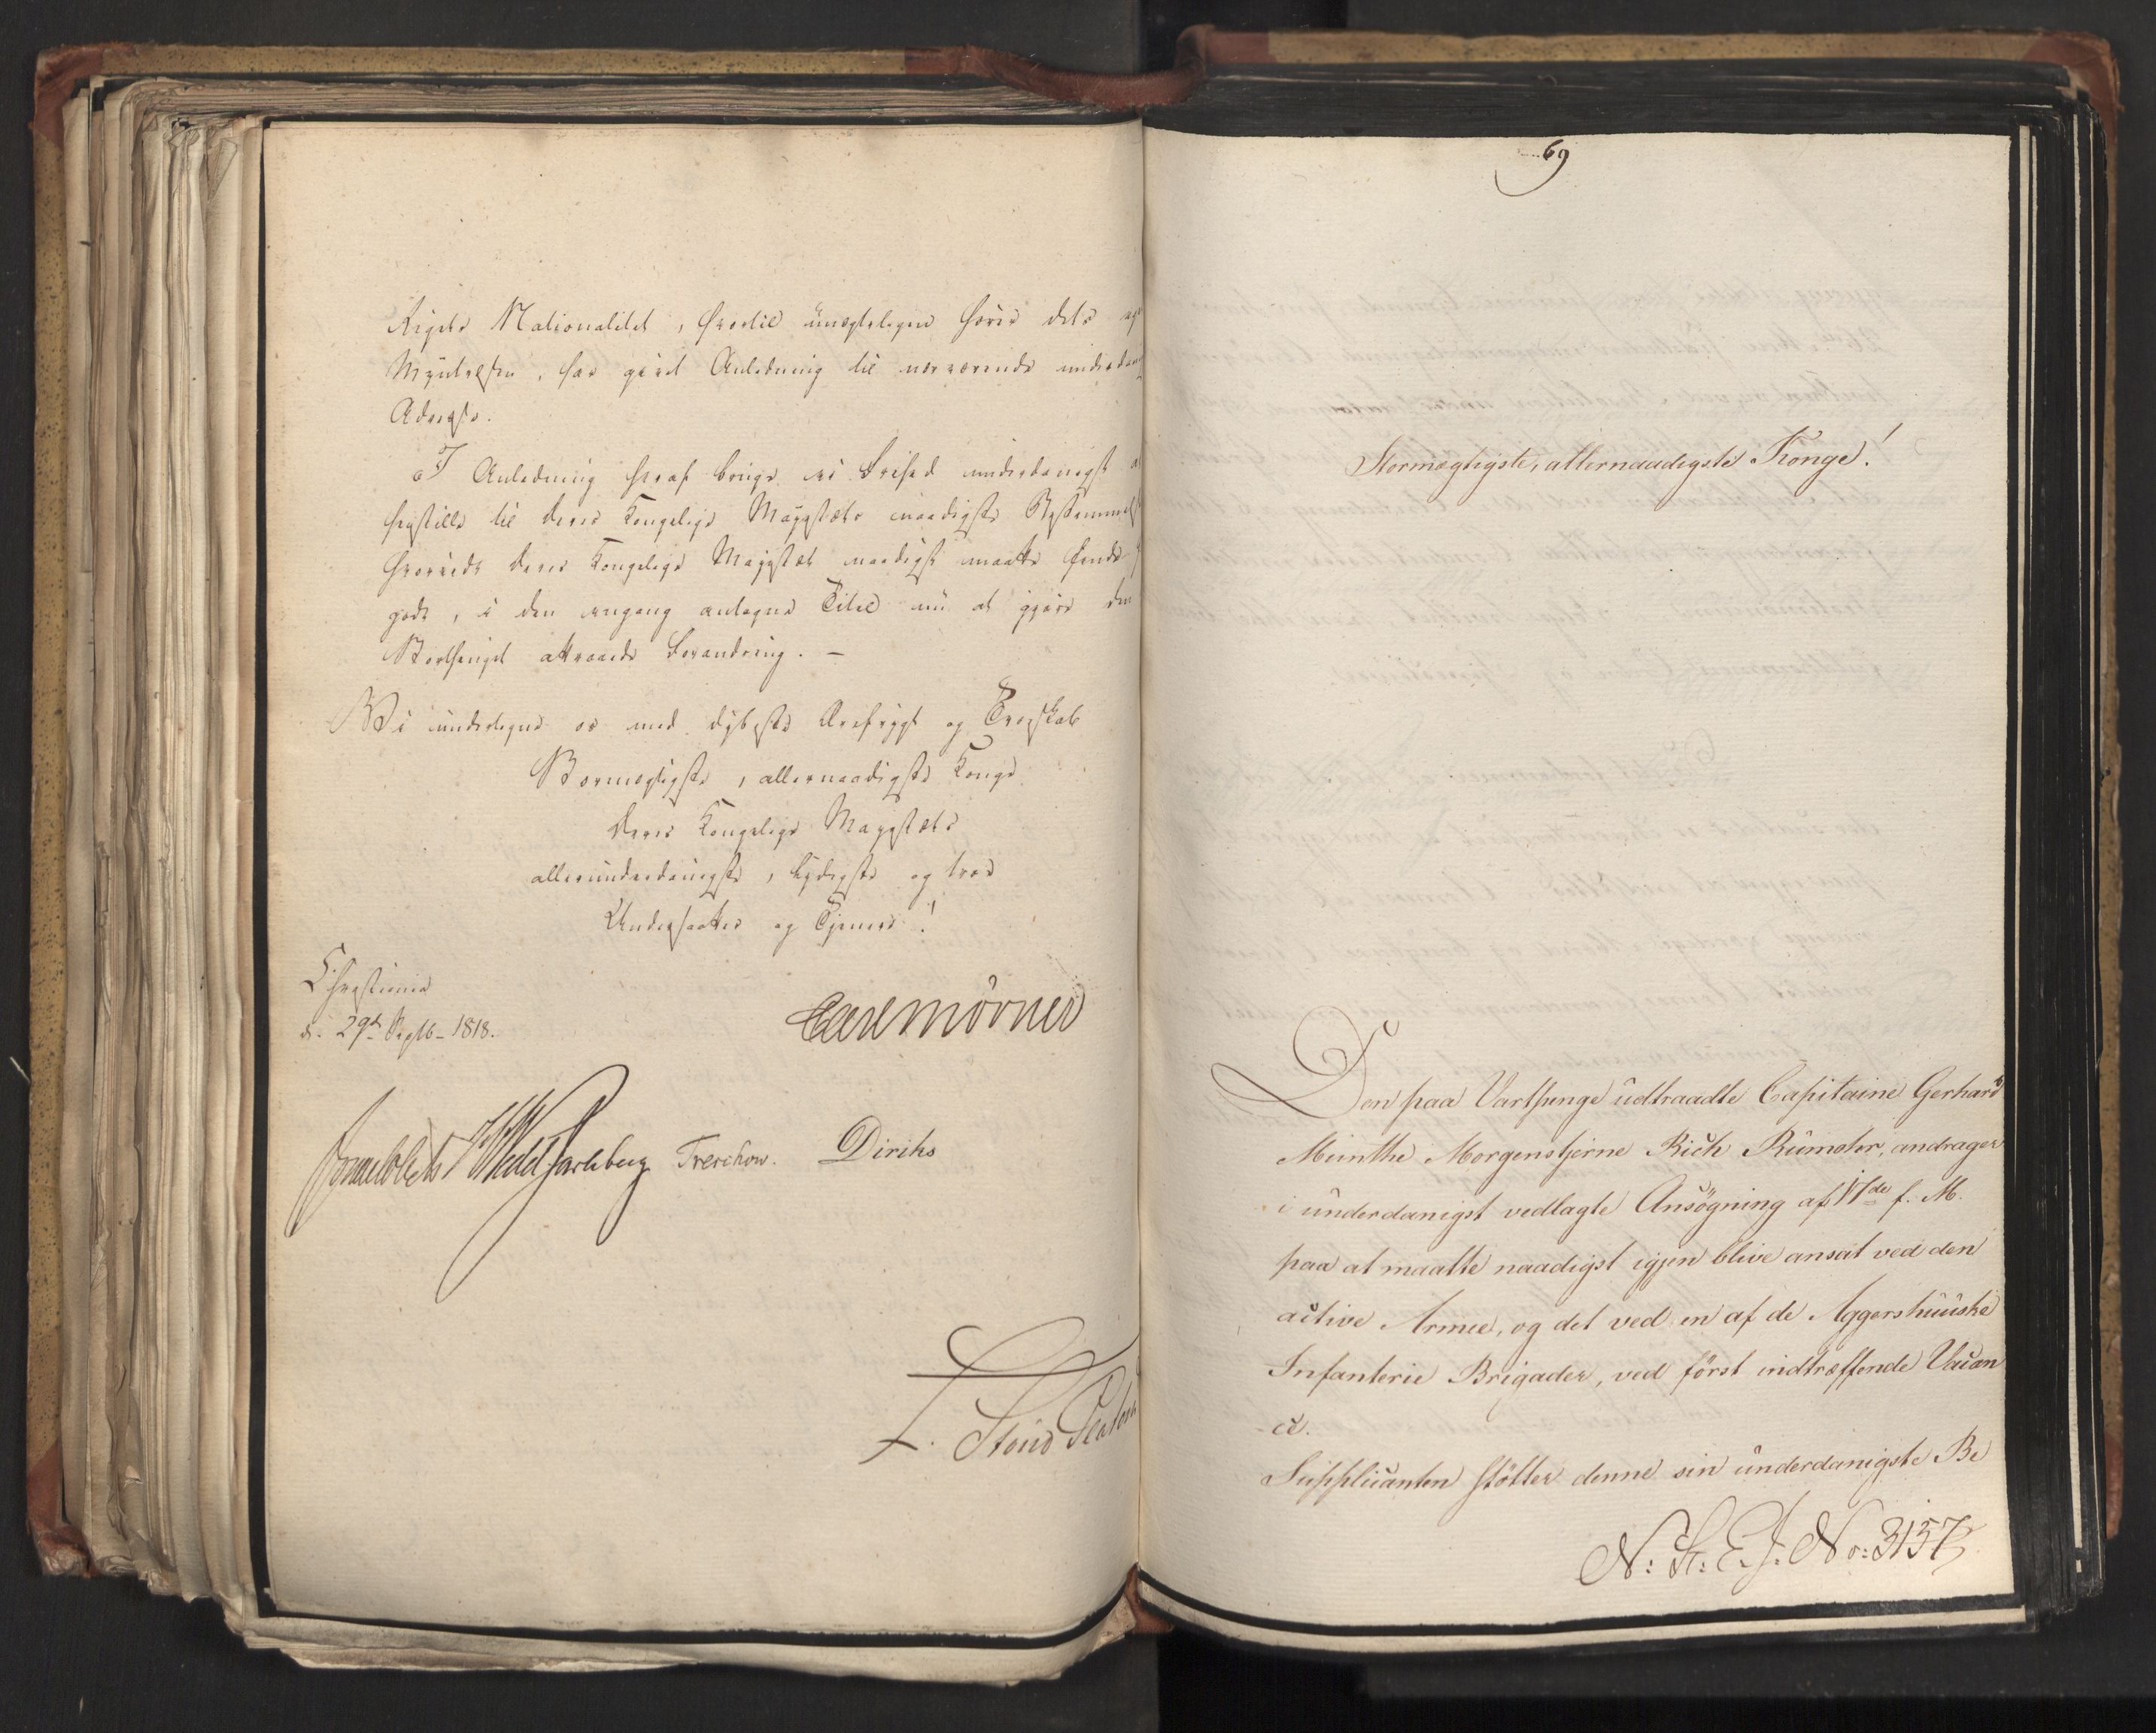 Rigets Nationalitet, hvortil unægteligen hører dets
Myntvæsen, har givet Anledning til nærværende underdan
Adresse.
I Anledning heraf bringe vi herved underdanigst
henstille til Deres Kongelige Majestæts naadigste Bestemmelse
hvorvidt Deres Kongelige Majestæt naadigst maatte finde
godt, i den engang antagne Titel nu at gjøre den
Storthinget attraaede Forandring. —
Vi undertegne os med dybeste Ærefrygt og Troskab
Stormægtigste, allernaadigste Konge
Deres Kongelige Majestæts
allerunderdanigste, lydigste og troe
Undersaatter og Tjenere!
Christiania
d. 29de Septb. 1818.
Carl Mörner
Sommerhielm Wedel Jarlsberg Treschow. Diriks
L. Stoud Platou
69
Stormægtigste, allernaadigste Konge!
Den paa Vartpenge udtraadte Capitaine Gerhard
Munthe Morgenstjerne Rich Rumohr, andrager
i underdanigst vedlagte Ansøgning af 17de f. M.
paa at maatte naadigst igjen blive ansat ved den
active Armee, og det ved en af de Aggershuuske
Infanterie Brigader, ved først indtræffende Vacan
ce.
Supplicanten støtter denne sin underdanigste Be
N: St: E. J. No: 3157